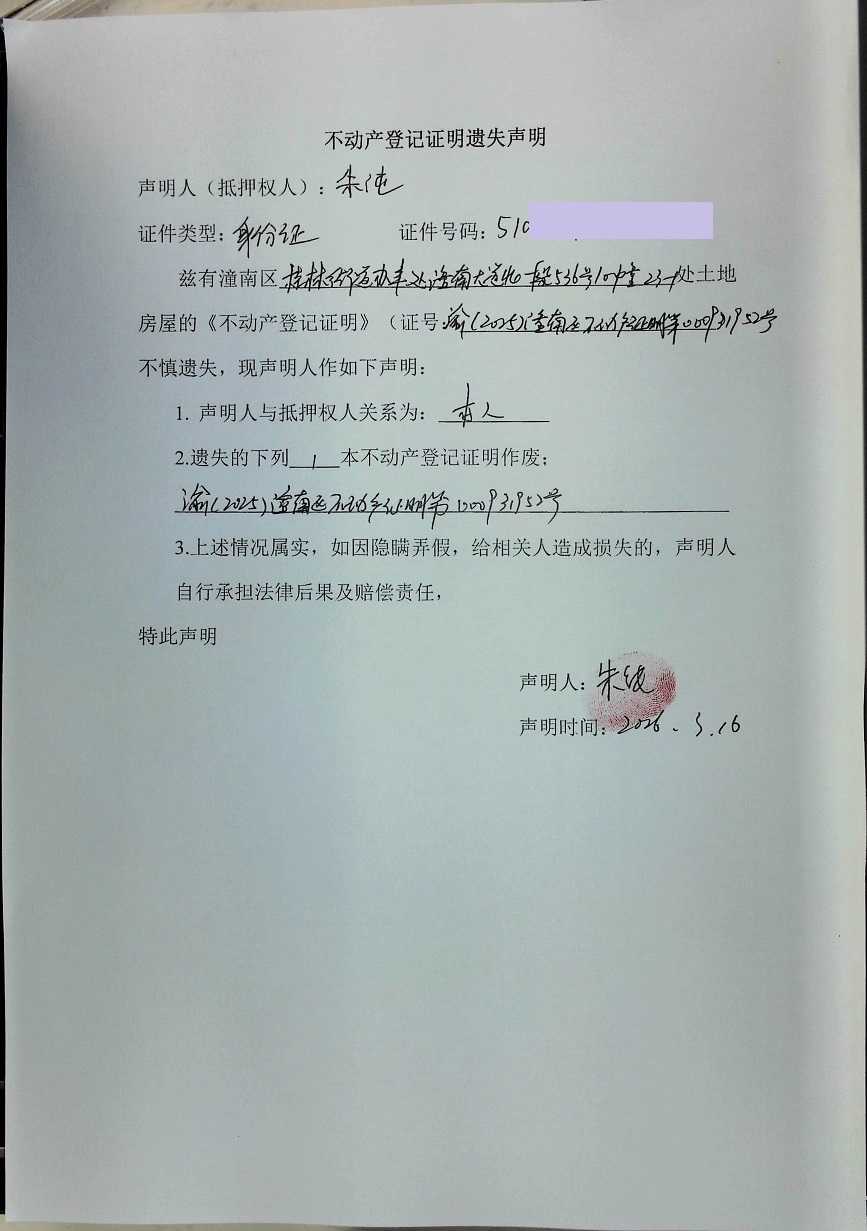 不动产登记证明遗失声明
声明人（抵押权人）：朱纯
证件类型：身份证 证件号码：510
兹有潼南区桂林街道办事处潼南大道北一段536号10幢23-1处土地
房屋的《不动产登记证明》（证号：渝(2025)潼南区不动产证明第000931952号
不慎遗失，现声明人作如下声明：
1. 声明人与抵押权人关系为：本人
2.遗失的下列 1 本不动产登记证明作废；
渝(2025)潼南区不动产证明第000931952号
3.上述情况属实，如因隐瞒弄假，给相关人造成损失的，声明人
自行承担法律后果及赔偿责任，
特此声明
声明人：朱纯
声明时间：2026.3.16